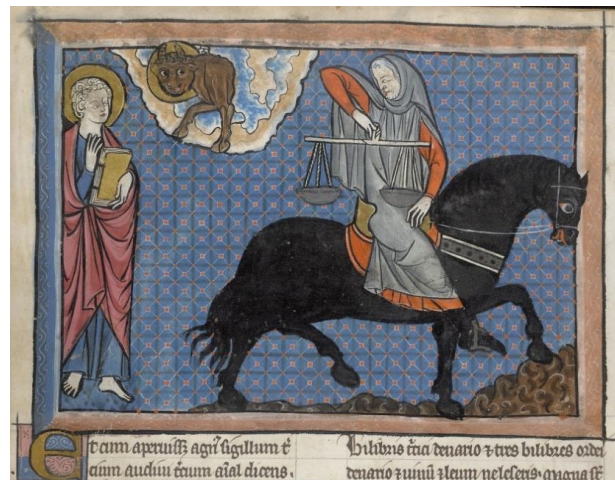 Et cum aperuissꝫ agn᷒ sigillum t̾
cium audiui t̾cium aīal dicens.
Bilibris t̾tici denario ⁊ tres bilibres ordei
denario ⁊ uinū ⁊ oleum ne leseris.